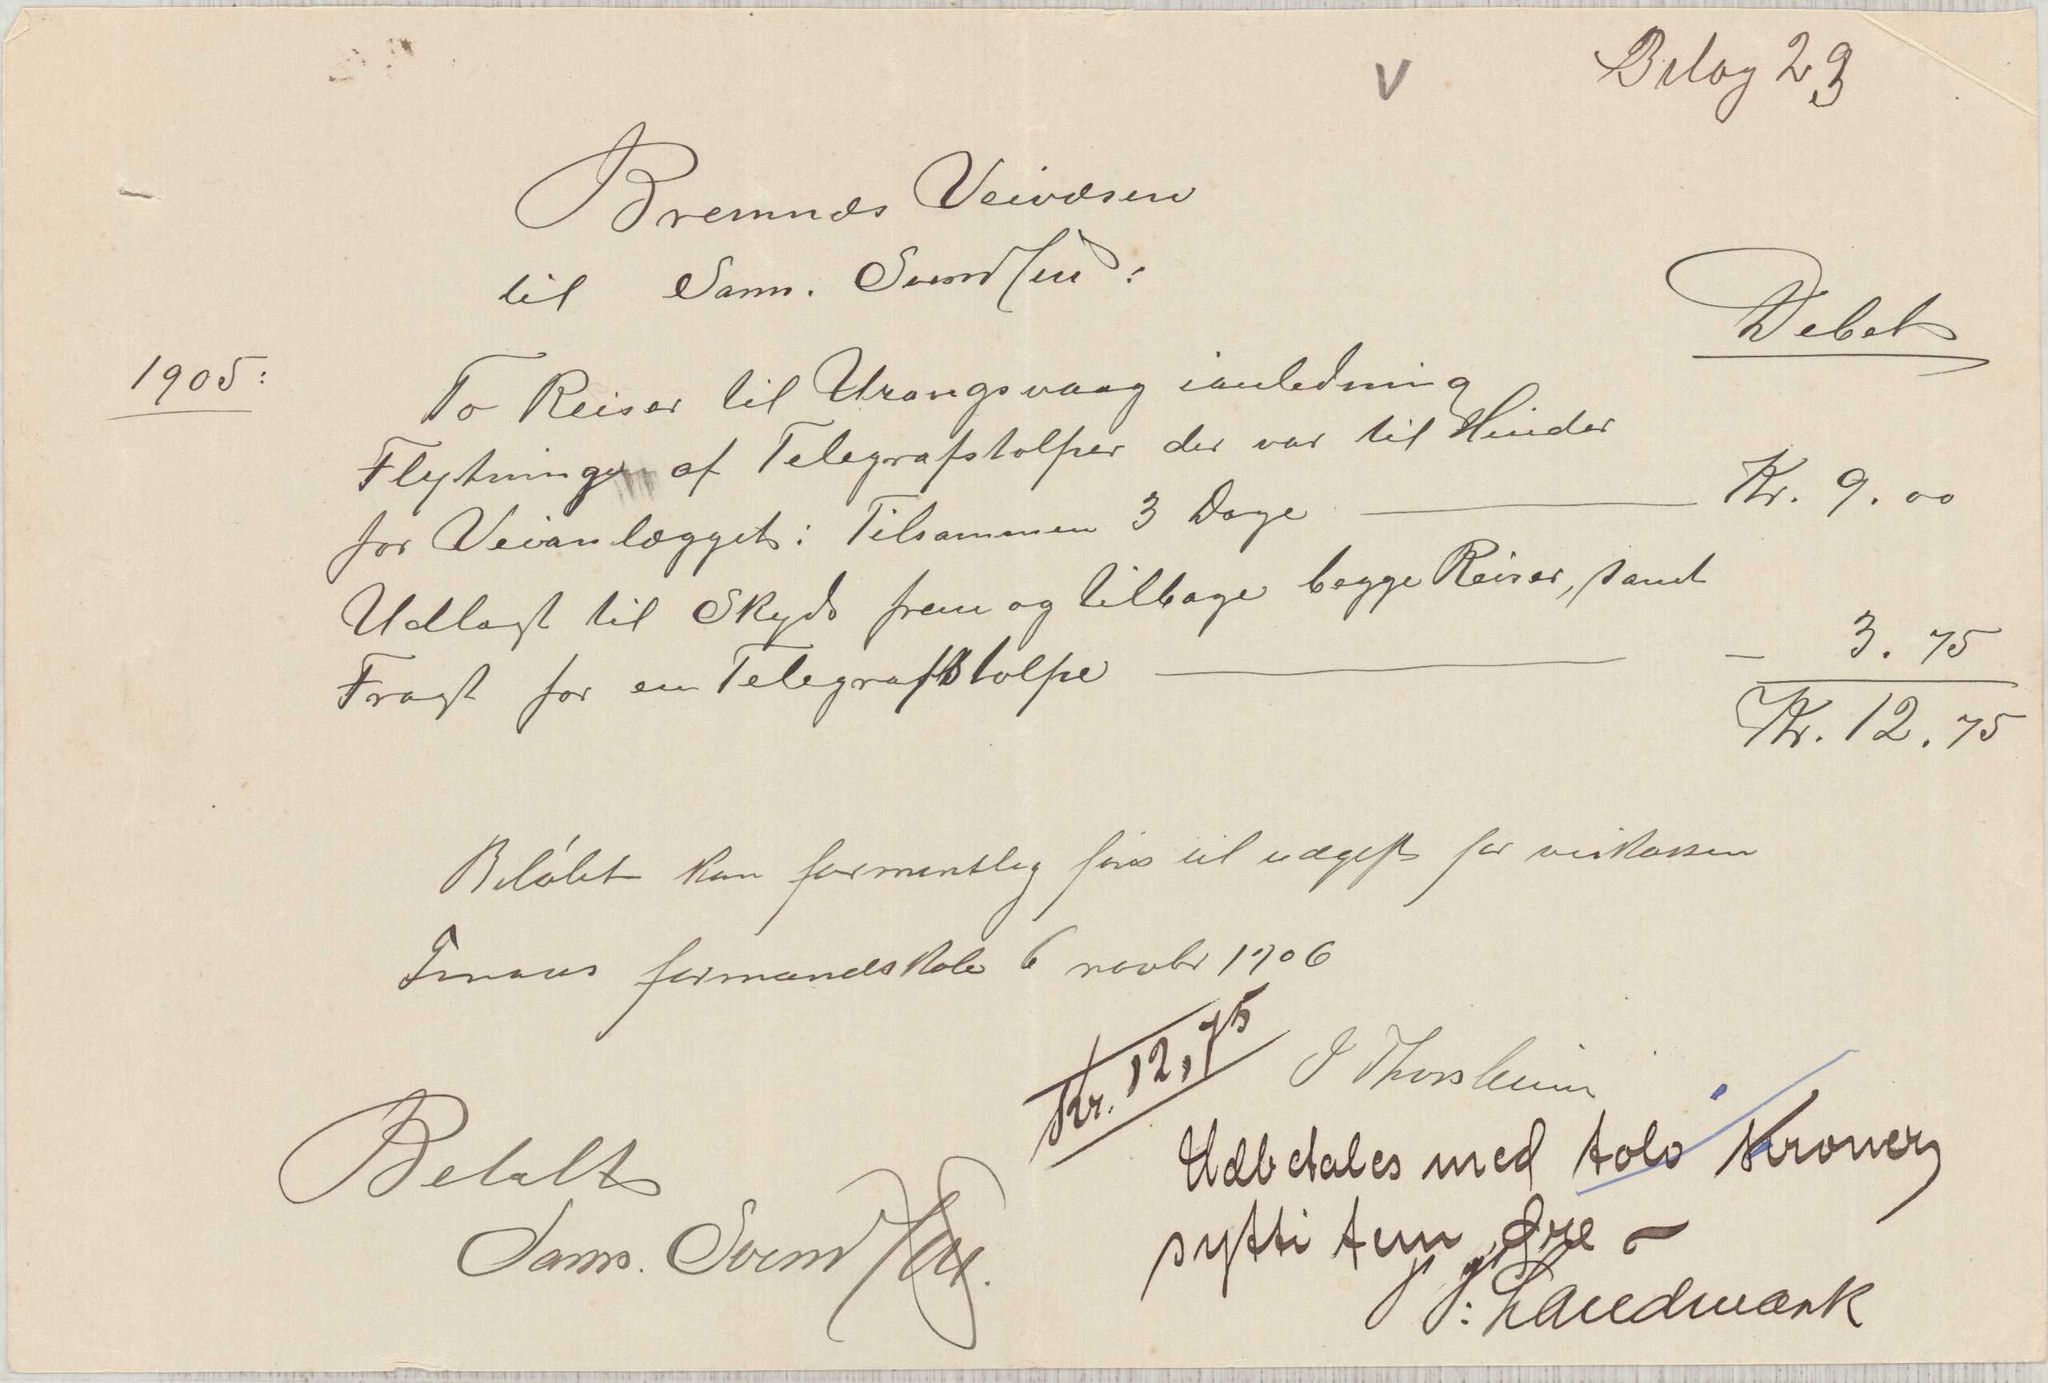 V
Bilag 23
Bremnes Veivæsen
til Sam. Svendsen:
Debet
1905:
To Reiser til Urangsvaag ianledning
Flytninge af Telegrafstolper der var til Hinder
for Veianlægget: Tilsammen 3 Dage — Kr. 9.00
Udlagt til Skyds frem og tilbage begge Reiser, samt
Fragt for en Telegrafstolpe — - 3.75
Kr. 12.75
Beløbet kan formentlig føres til udgift for veikassen
Finaas formandskab 6 novbr 1906
Kr. 12,75
J Thorsheim
Betalt
Sam. Svendsen.
Udbetales med tolv Kroner
sytti fem Øre -
Landmark